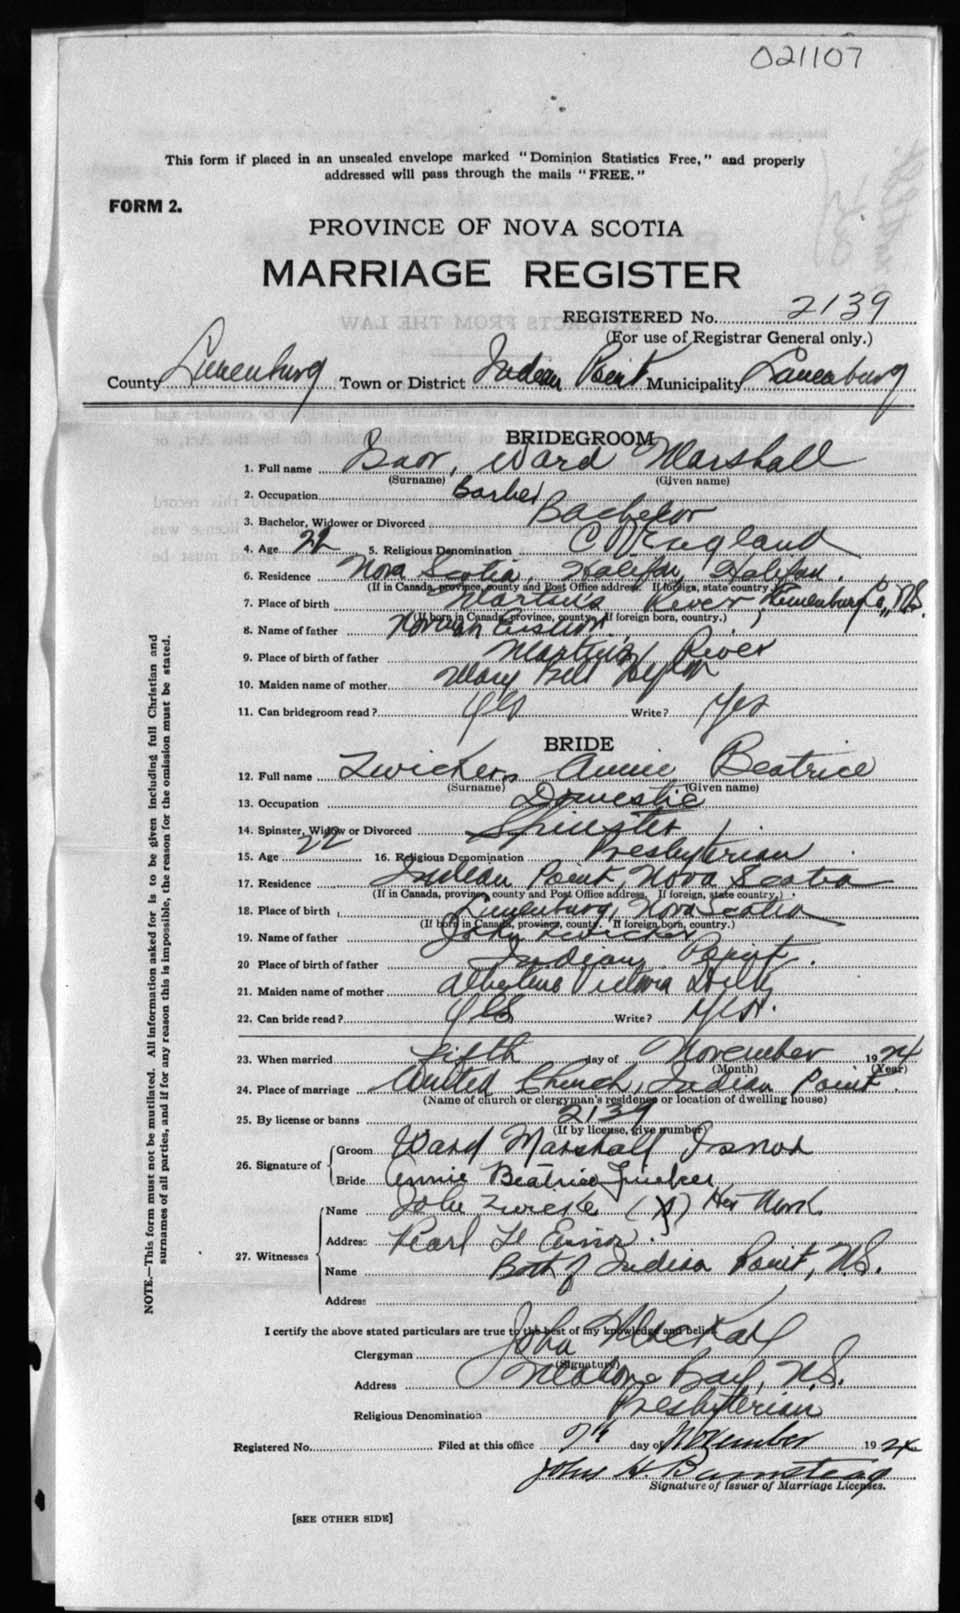 021107
This form if placed in an unsealed envelope marked "Dominion Statistics Free," and properly
addressed will pass through the mails "FREE."
FORM 2.
PROVINCE OF NOVA SCOTIA
MARRIAGE REGISTER
REGISTERED No. 2139
(For use of Registrar General only.)
County Lunenburg Town or District Indian Point Municipality Lunenburg
BRIDEGROOM
1. Full name Ward Marshall
(Surname) (Given name)
2. Occupation Barber
3. Bachelor, Widower or Divorced Bachelor
4. Age 22 5. Religious Denomination C of England
6. Residence Nova Scotia, Halifax, Halifax.
(If in Canada, province, county and Post Office address. If foreign, state country.)
7. Place of birth Martins River, Lunenburg Co., N.S.
(If born in Canada, province, county. If foreign born, country.)
8. Name of father Norman
9. Place of birth of father Martins River
10. Maiden name of mother Mary Bell
11. Can bridegroom read? Yes Write? Yes
BRIDE
12. Full name Zwicker, Annie Beatrice
(Surname) (Given name)
13. Occupation Domestic
14. Spinster, Widow or Divorced Spinster
15. Age 22 16. Religious Denomination Presbyterian
17. Residence Indian Point, Nova Scotia
(If in Canada, province, county and Post Office address. If foreign, state country.)
18. Place of birth Lunenburg, Nova Scotia
(If born in Canada, province, county. If foreign born, country.)
19. Name of father John Zwicker
20 Place of birth of father Indian Point.
21. Maiden name of mother Victoria
22. Can bride read? Yes Write? Yes.
23. When married Fifth day of November 1924
(Month) (Year)
24. Place of marriage United Church, Indian Point.
(Name of church or clergyman's residence or location of dwelling house)
25. By license or banns 2139
(If by license, give number)
26. Signature of Groom Ward Marshall Isnor
Bride Annie Beatrice Zwicker
27. Witnesses Name John (X) Her Mark
Address Pearl
Name Both of Indian Point, N.S.
Address
I certify the above stated particulars are true to the best of my knowledge and belief.
Clergyman John MacKay
(Signature)
Address Mahone Bay, N.S.
Religious Denomination Presbyterian
Registered No. Filed at this office 7th day of November 1924
John H. Barnstead
Signature of Issuer of Marriage Licenses.
[SEE OTHER SIDE]
NOTE.—This form must not be mutilated. All information asked for is to be given including full Christian and
surnames of all parties, and if for any reason this is impossible, the reason for the omission must be stated.